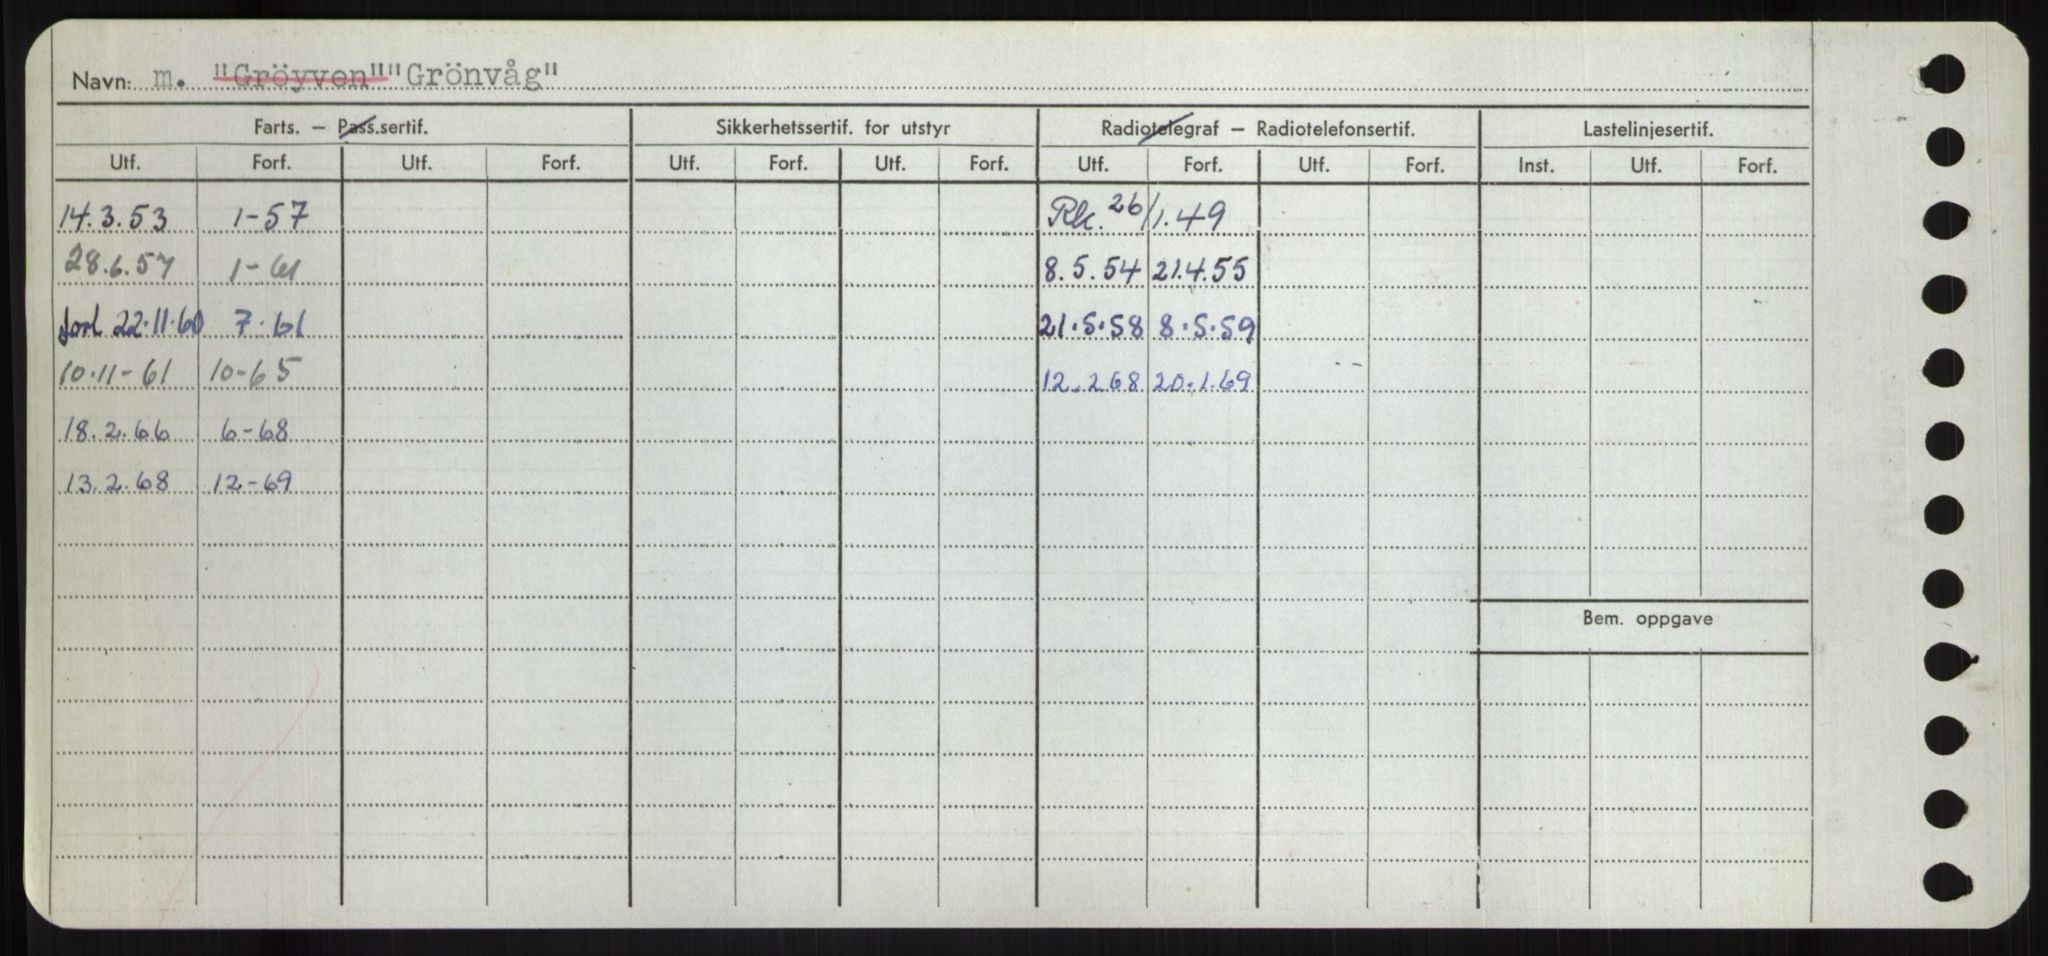 Navn: m. "Gröyven" "Grönvåg"
Farts. – Pass.sertif. Sikkerhetssertif. for utstyr Radiotelegraf – Radiotelefonsertif. Lastelinjesertif.
Utf. Forf. Utf. Forf. Utf. Forf. Utf. Forf. Utf. Forf. Utf. Forf. Inst. Utf. Forf.
14.3.53 1-57 Rk. 26/1.49
28.6.57 1-61 8.5.54 21.4.55
forl 22.11.60 7.61 21.5.58 8.5.59
10.11-61 10-65 12.2.68 20.1.69
18.2.66 6-68
13.2.68 12-69
Bem. oppgave